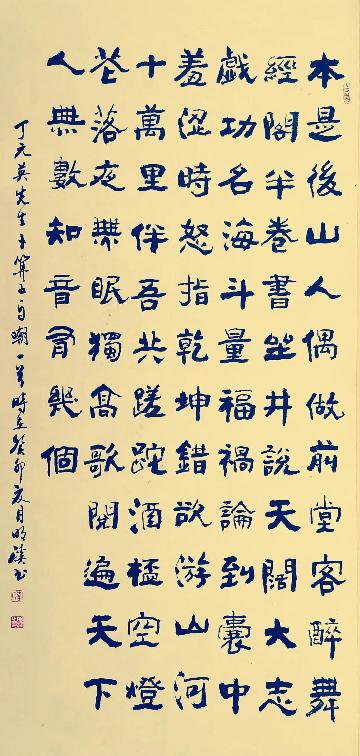 本是後山人偶做前堂客醉舞
經閣半卷書坐井說天闊大志
戲功名海斗量福禍論到囊中
羞澀時怒指乾坤錯欲游山河
十萬里伴吾共蹉跎酒榼空燈
花落夜無眠獨高歌閱遍天下
人無數知音有幾個
丁元英先生卜算子自嘲一首時在癸卯夏月明溪書